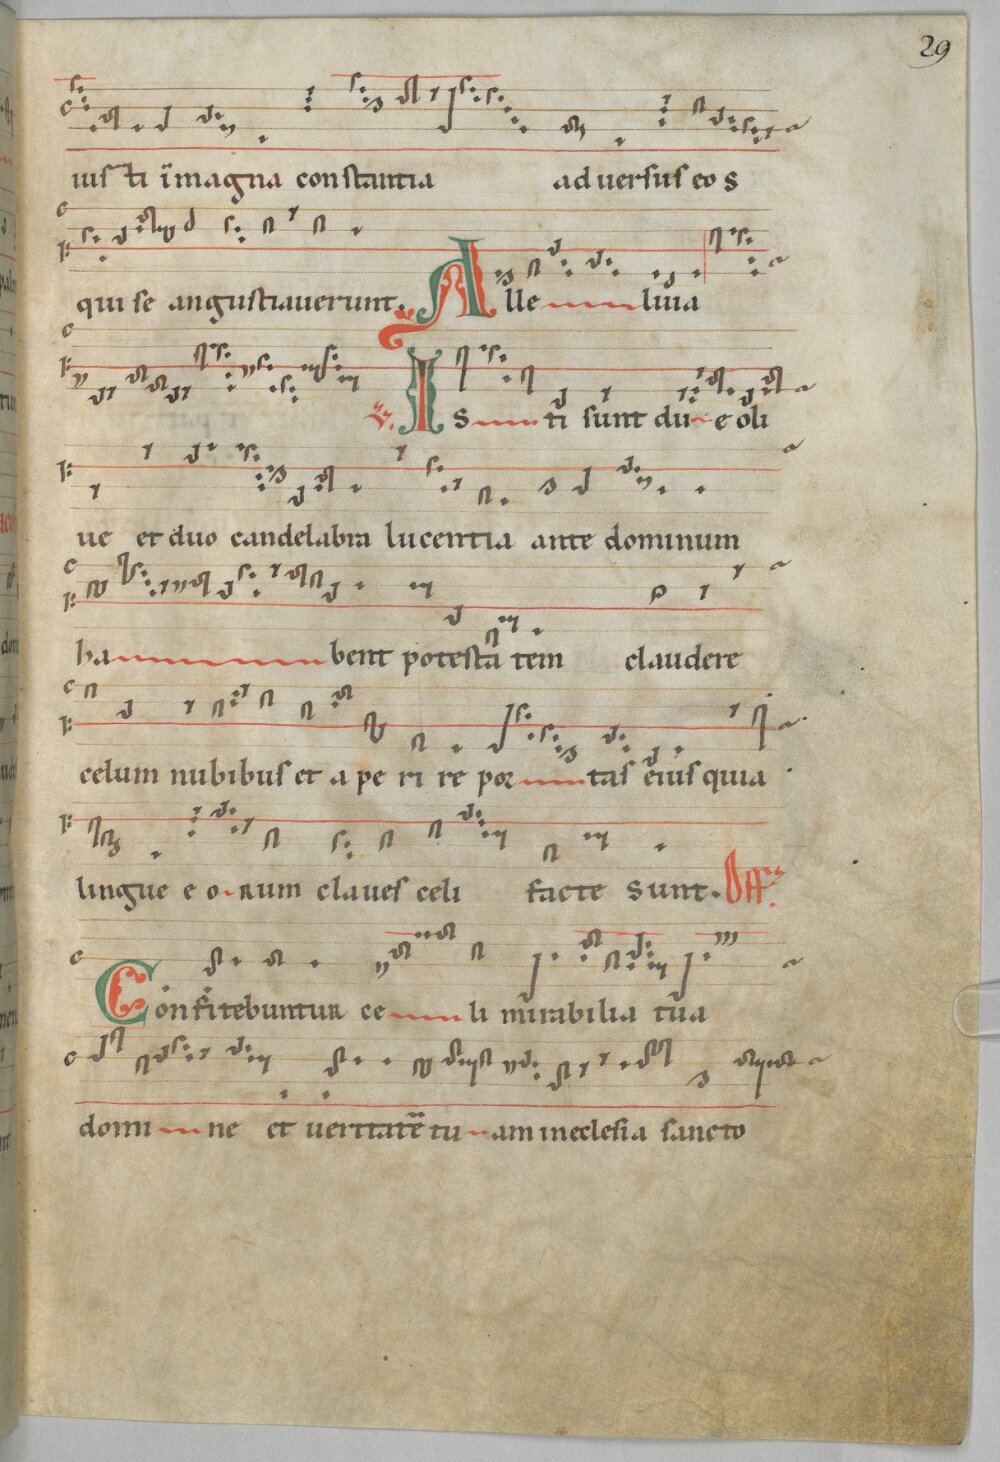 29
iusti in magna constantia adversus eos
qui se angustiaverunt. Alleluia
℣. Isti sunt due oli
ue et duo candelabra lucentia ante dominum
habent potestatem claudere
celum nubibus et a pe ri re por tas eius quia
lingue e o rum claves celi facte sunt. Off.
Confitebuntur celi mirabilia tua
domine et veritatē tuam in eclesia sancto